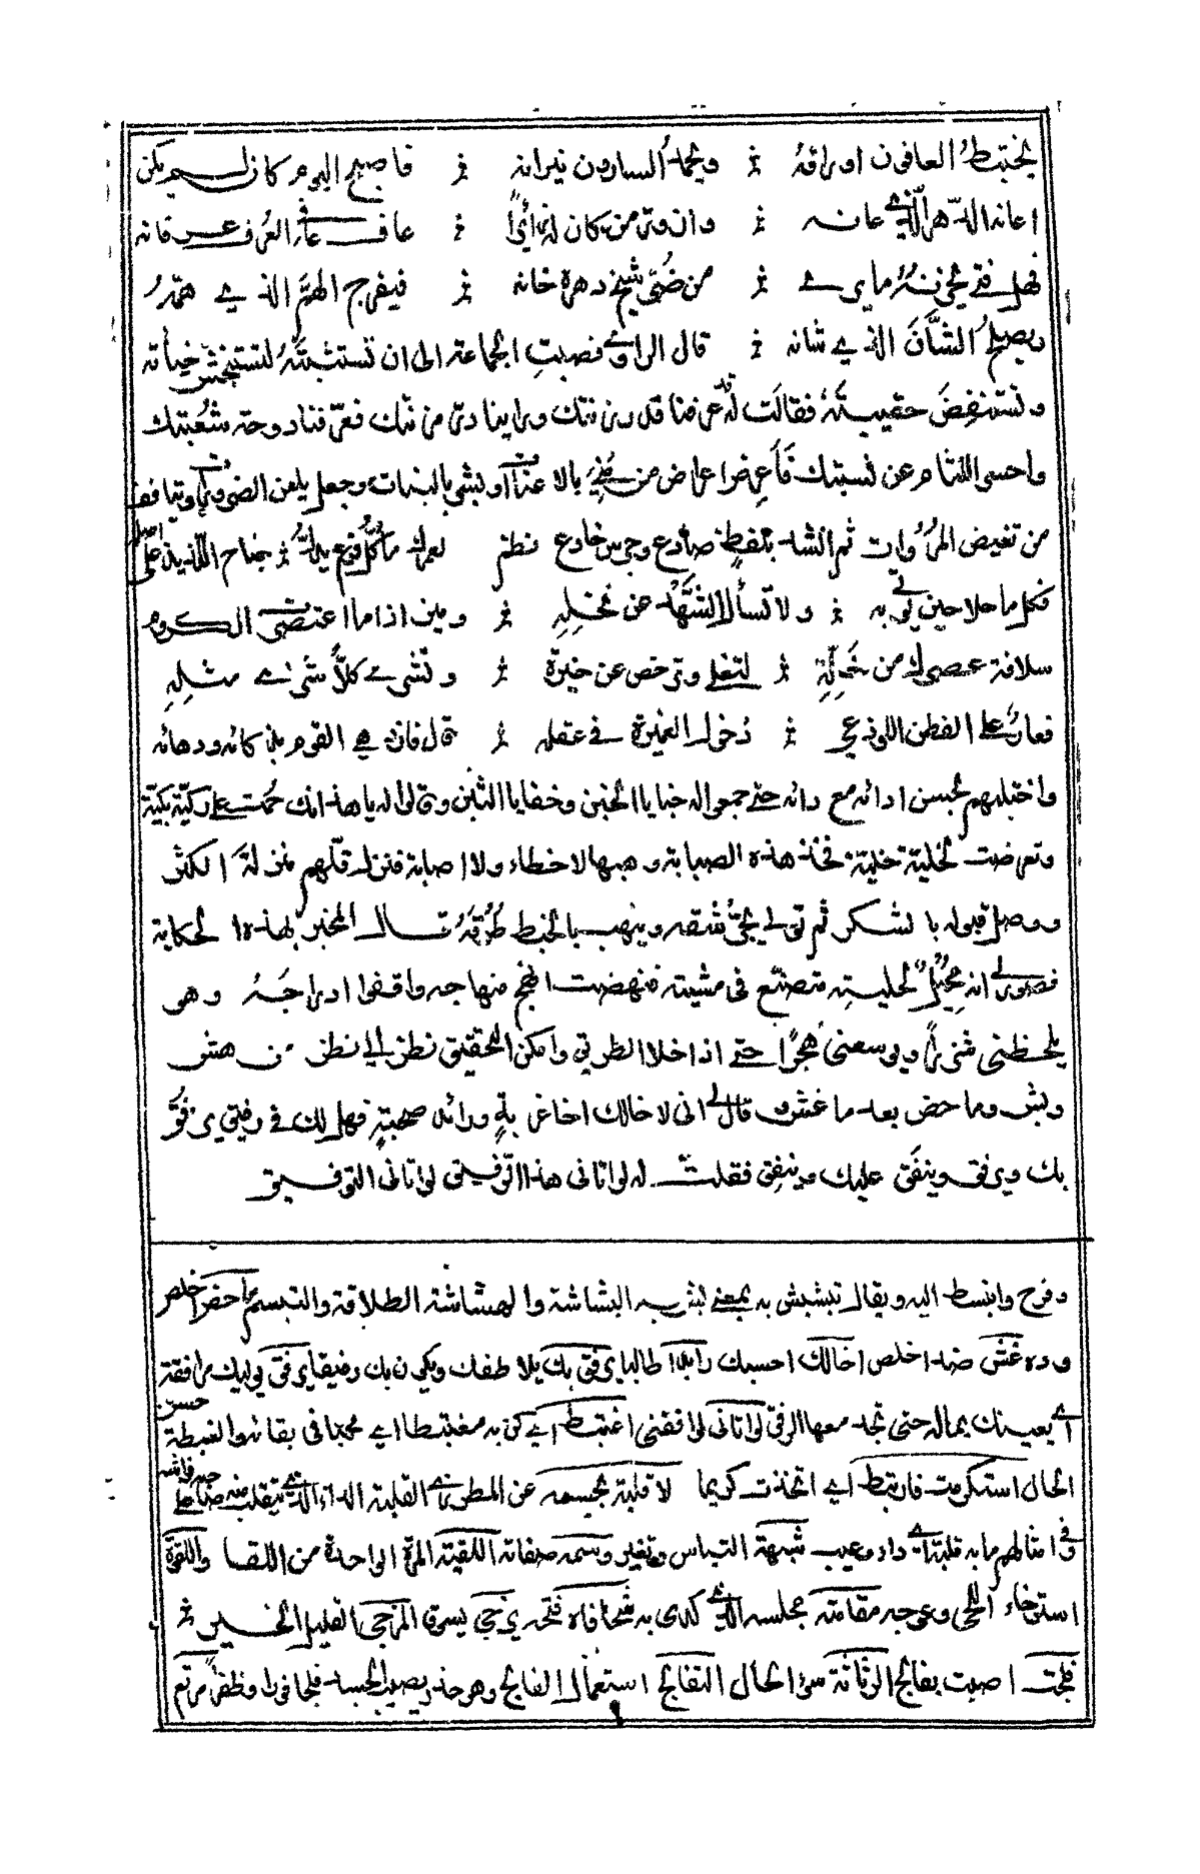 يختبط العافون اوراقه ۞ ويحمد السارون نيرانه ۞ فاصبح اليوم كان لم يكن
اعانه الدهر الذي عانه ۞ وازور من كان له زائرا ۞ وعاف عافي العرف عرفانه
فهل فتى يحزنه ما يرى ۞ من ضر شيخ دهره خانه ۞ فيفرج الهم الذي همه
ويصلح الشان الذي شانه ۞ قال الراوي فصبت الجماعة الى ان تستثبته لتستنجش خبأته
وتستنفض حقيبته فقالت له قد عرفنا قدر رتبتك وراينا در مزنتك فعرفنا دوحة شعبتك
واحسر اللثام عن نسبتك فاعرض اعراض من مني بالاعنات او بشر بالبنات وجعل يلعن الضرورات ويتافف
من تغيض المروات ثم انشد بلفظ صادع وجرس خادع نظم لعمرك ما كل فرع يدل ۞ جناه اللذيذ على اصله
فكل ما حلا حين تؤتى به ۞ ولا تسأل الشهد عن نحله ۞ وميز اذا ما اعتصرت الكروم
سلافة عصرك من خله ۞ لتغلي وترخص عن خبرة ۞ وتشري كلا شرى مثله
فعار على الفطن اللوذعي ۞ دخول الغميزة في عقله ۞ قال فازدهى القوم بذكائه ودهائه
واختلبهم بحسن ادائه مع دائه حتى جمعوا له خبايا الخبن وخفايا الثبن وقالوا له يا هذا انك حمت على ركية بكية
وتعرضت لخلية خلية فخذ هذه الصبابة وهبها لا خطاء ولا اصابة فنزل قلهم منزلة الكثر
ووصل قبوله بالشكر ثم تولى يجر شقه وينهب بالخبط طرقه قال المخبر بهذه الحكاية
فصور لي انه محيل لحليته متصنع في مشيته فنهضت انهج منهاجه واقفوا ادراجه وهو
يلحظني شزرا ويوسعني هجرا حتى اذا خلا الطريق وامكن التحقيق نظر الي نظر من هش
وبش وماحض بعد ما غش وقال لي اني لاخالك اخا غربة ورائد صحبة فهل لك في رفيق يرفق
بك ويرفق وينفق عليك وينفق فقلت له لو اتاني هذا الرفيق لواتاني التوفيق
وفرح وانبسط اليه ويقال تبشبش به بمعنى بش به البشاشة والهشاشة الطلاقة والتبسم ماحض اخلص
وده غش ضد اخلص اخالك احسبك رائدا طالبا يرفق بك يلاطفك ويكون بك رفيقا يرفق يوليك مرافقة
اي يعينك بماله حتى تجد معها الرفق لواتاني لوافقني اغتبط اي كن به مغتبطا اي محبا في بقائه والغبطة حسن
الحال استكرمت فارتبط اي اتخذت كريما لا قلبة بجسمه عن المطرزي القلبة الداء الذي يتقلب منه صاحبه على فراشه
وفي امثالهم ما به قلبة اي داء وعيب شبهة التباس وتغير وسمه صفاته اللقية المرة الواحدة من اللقا واللقوة
استرخاء اللحى وعوجه مقامته مجلسه الذي كدى به شحافاه فتحه يزجي يسوق المزجي القليل الخسيس ۞
فلجت اصبت بفالج الرثاثة سؤ الحال التفالج استعمال الفالج وهو خدر يصيب الجسد فلجا فوزا وظفرا مرتع